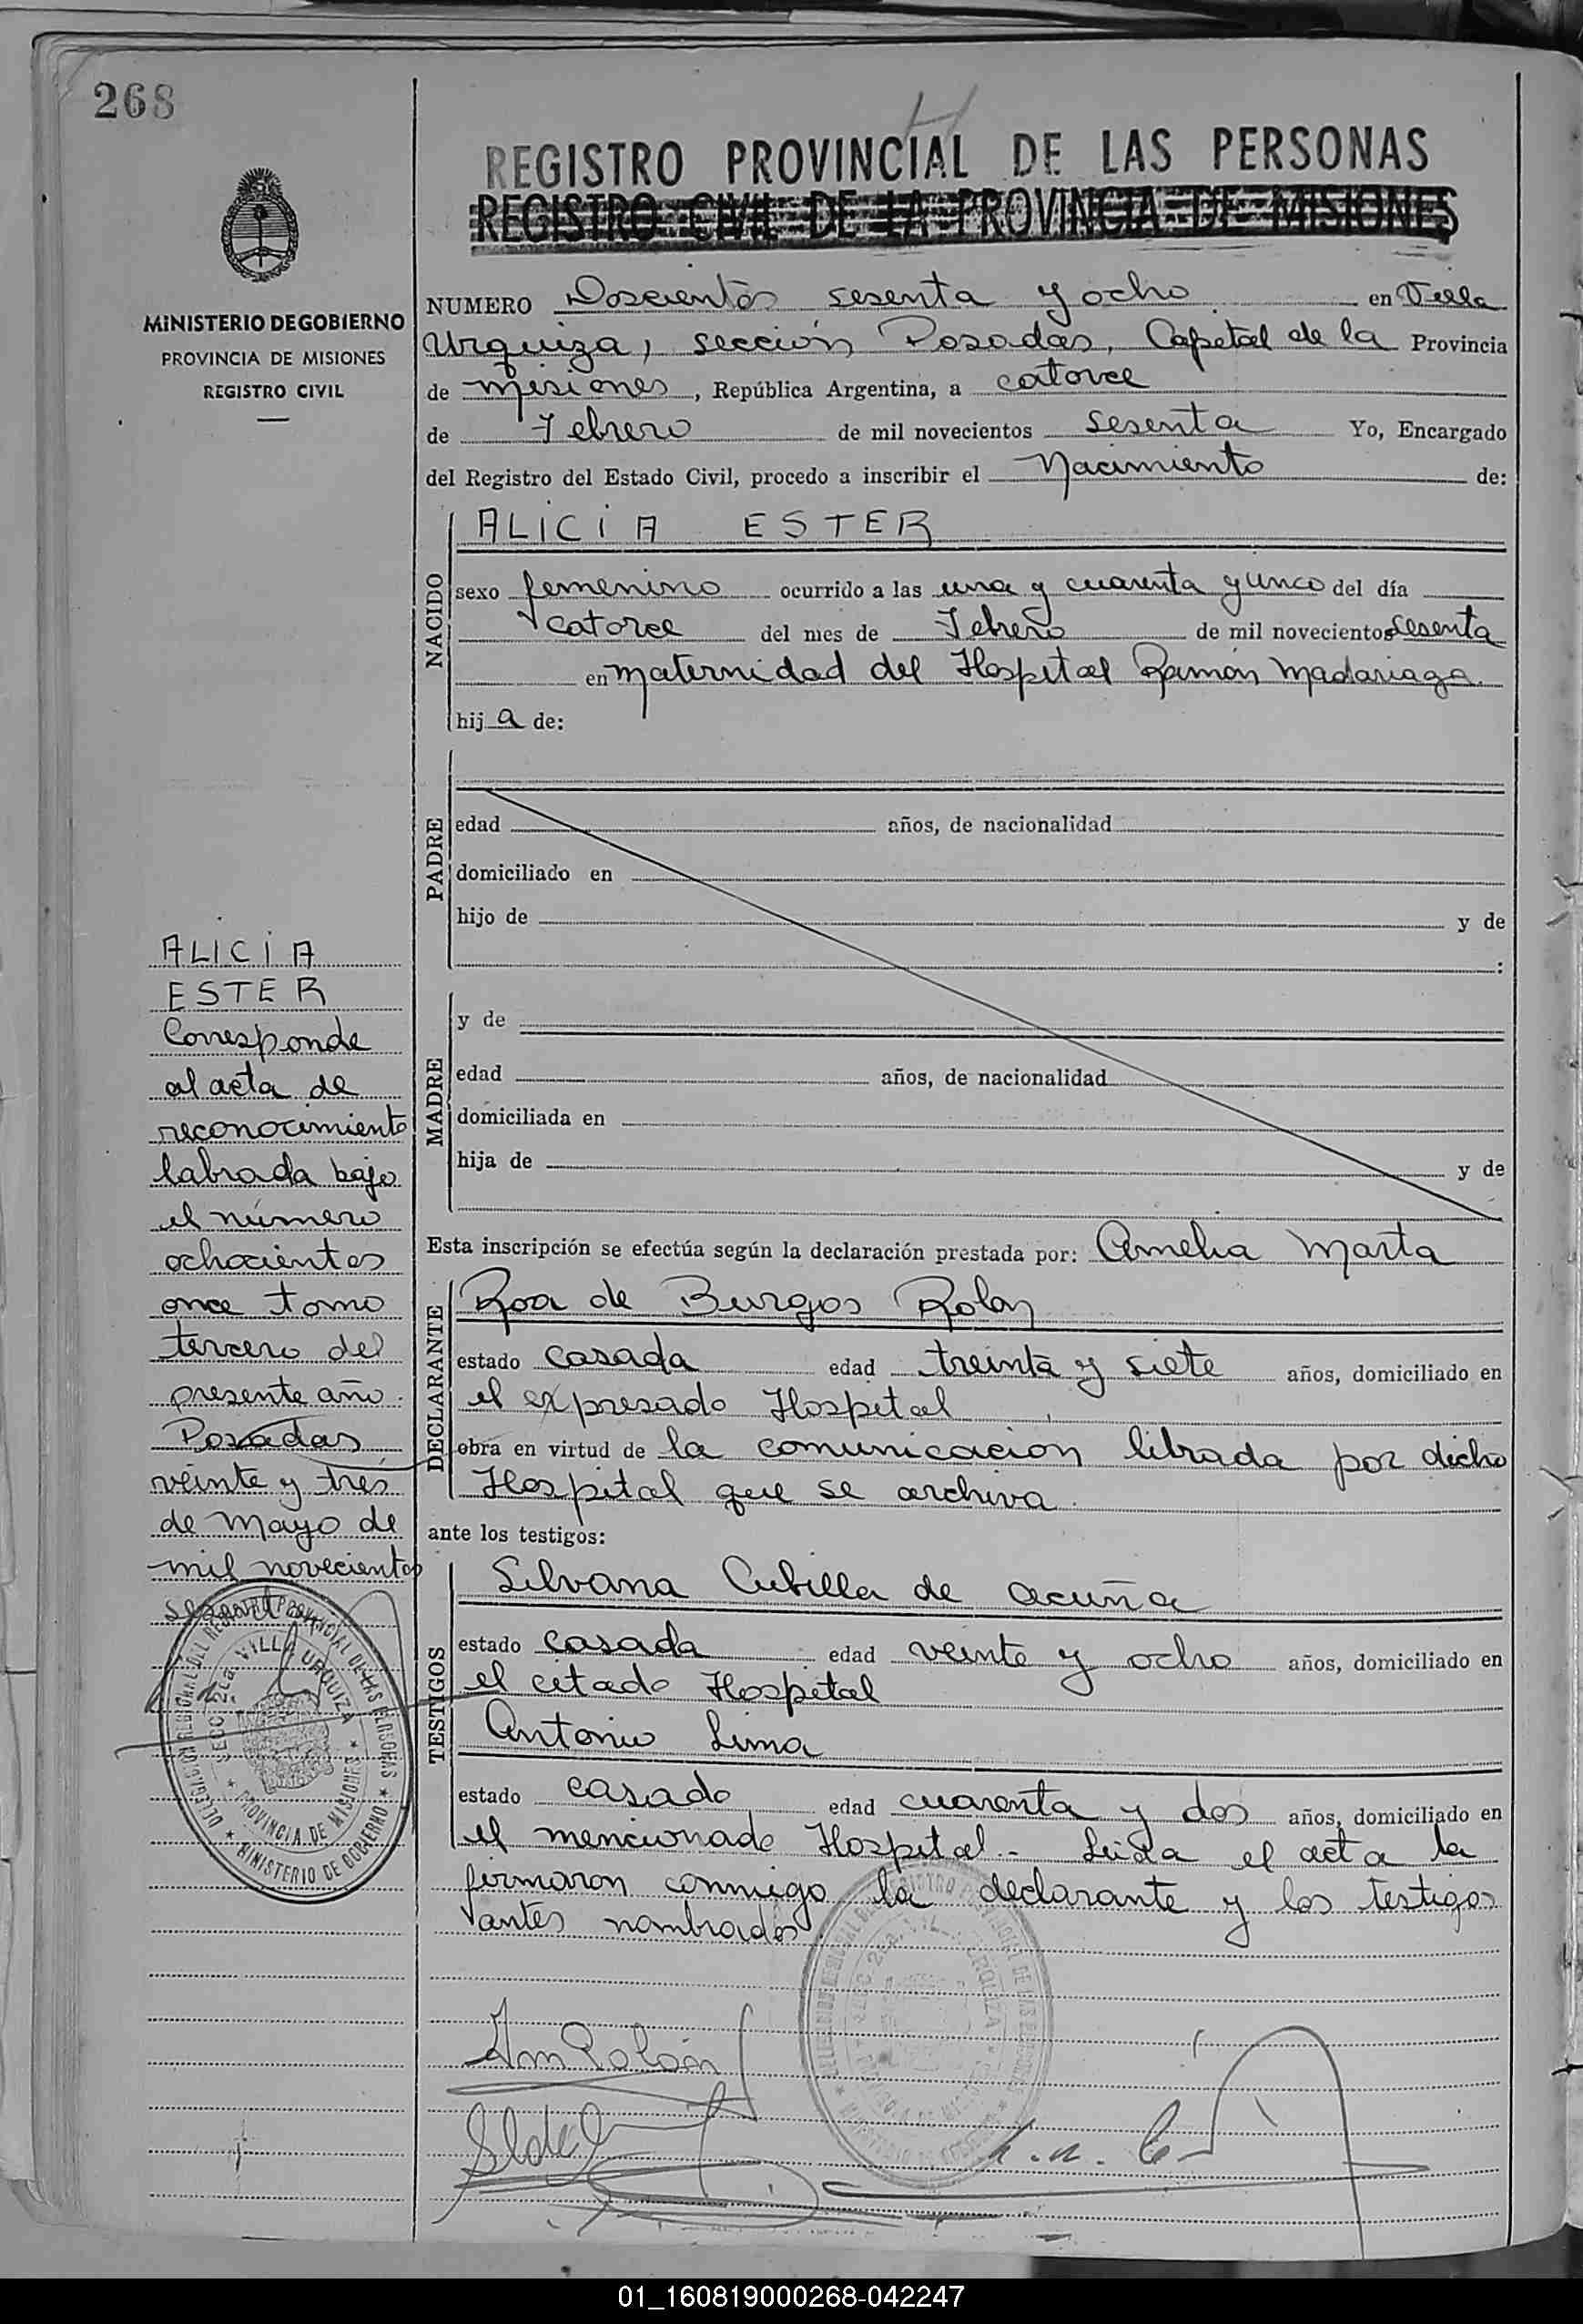 268
REGISTRO PROVINCIAL DE LAS PERSONAS
REGISTRO CIVIL DE LA PROVINCIA DE MISIONES
MINISTERIO DE GOBIERNO
PROVINCIA DE MISIONES
REGISTRO CIVIL
NUMERO Doscientos sesenta y ocho en Villa
Urquiza, sección Posadas, Capital de la Provincia
de Misiones, República Argentina, a catorce
de Febrero de mil novecientos sesenta Yo, Encargado
del Registro del Estado Civil, procedo a inscribir el Nacimiento de:
NACIDO
ALICIA ESTER
sexo femenino ocurrido a las una y cuarenta y cinco del día
catorce del mes de Febrero de mil novecientos sesenta
en Maternidad del Hospital Ramón Madariaga.
hij a de:
PADRE
edad años, de nacionalidad
domiciliado en
hijo de y de
:
MADRE
y de
edad años, de nacionalidad
domiciliada en
hija de y de
Esta inscripción se efectúa según la declaración prestada por: Amelia Marta
DECLARANTE
Roa de Burgos Rolon
estado casada edad treinta y siete años, domiciliado en
el expresado Hospital
obra en virtud de la comunicacion librada por dicho
Hospital que se archiva.
ante los testigos:
TESTIGOS
Silvana Cubilla de Acuña
estado casada edad veinte y ocho años, domiciliado en
el citado Hospital
Antonio Lima
estado casado edad cuarenta y dos años, domiciliado en
el mencionado Hospital.- Leida el acta la
firmaron conmigo la declarante y los testigos
antes nombrados.
ALICIA
ESTER
Corresponde
al acta de
reconocimiento
labrada bajo
el número
ochocientos
once tomo
tercero del
presente año.
Posadas
veinte y tres
de Mayo de
mil novecientos
sesenta.
DELEGACION REGIONAL DEL REGISTRO PROVINCIAL DE LAS PERSONAS
SECC. 2da. VILLA URQUIZA
PROVINCIA DE MISIONES
MINISTERIO DE GOBIERNO
01_160819000268-042247